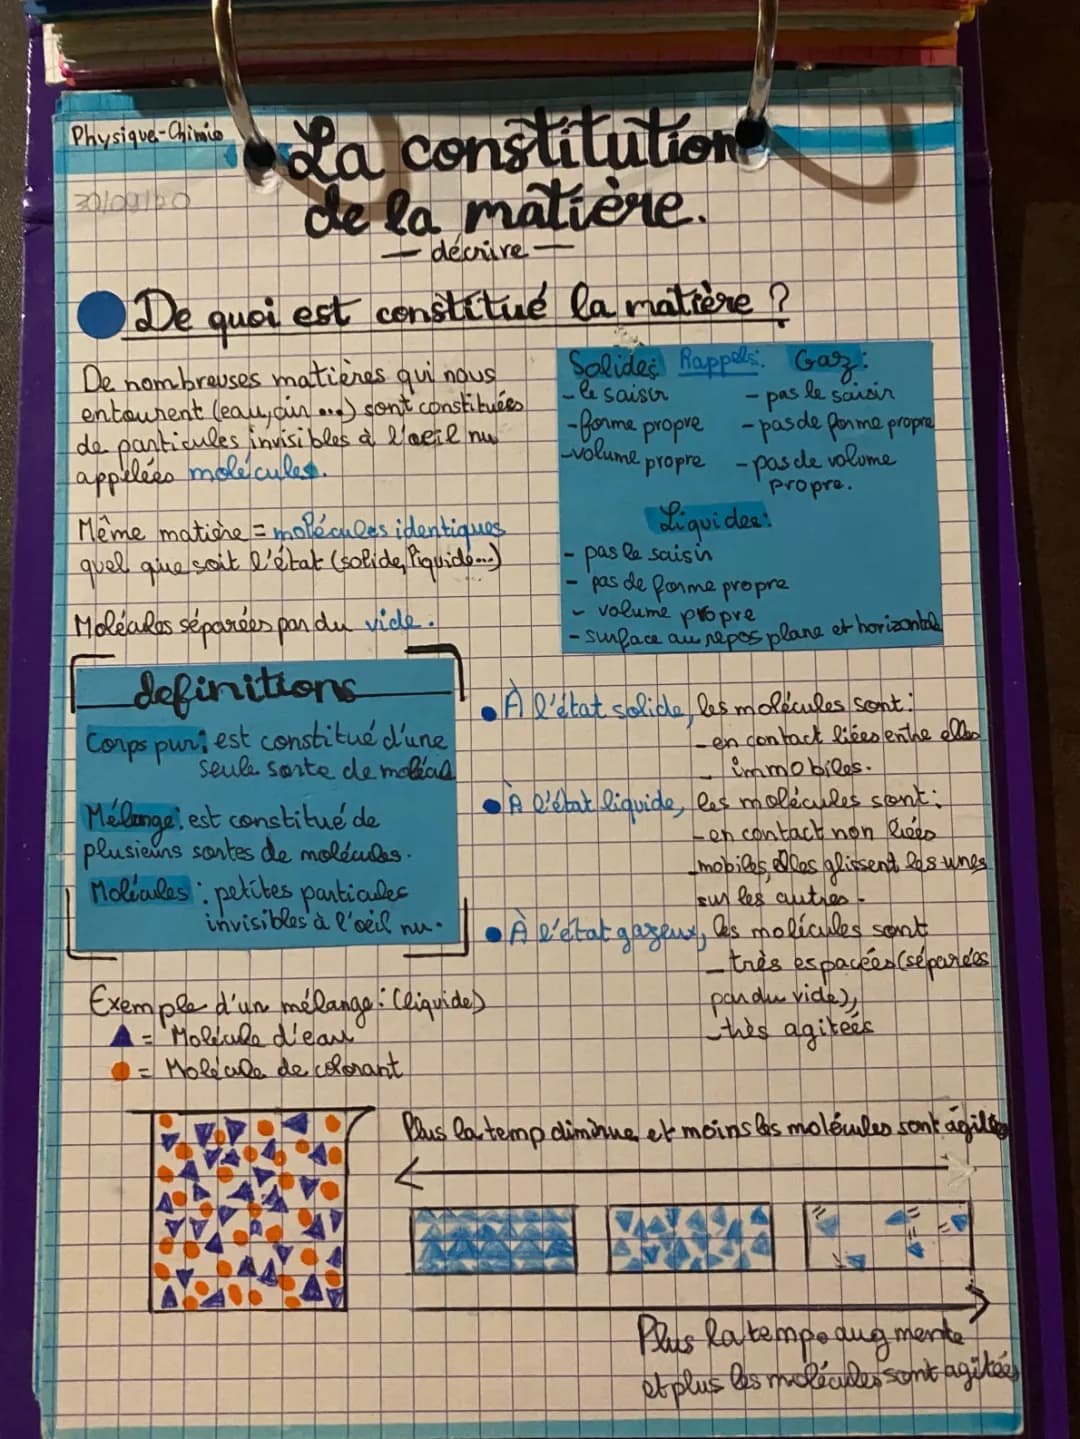 Physique-Chimie
30/09/20
La constitution
de la matière.
— décrire —
De quoi est constitué la matière ?
De nombreuses matières qui nous
entourent (eau, air ...) sont constituées
de particules invisibles à l'oeil nu
appélées molécules.
Même matière = molécules identiques
quel que soit l'état (solide, liquide...)
Molécules séparées par du vide.
Rappels:
Solides:
- le saisir
- forme propre
- volume propre
Gaz:
- pas le saisir
- pas de forme propre
- pas de volume
propre.
Liquides:
- pas le saisir
- pas de forme propre
- volume propre
- surface au repos plane et horizontale
definitions
Corps pur: est constitué d'une
seule sorte de molécul
Mélange: est constitué de
plusieurs sortes de molécules.
Molécules : petites particules
invisibles à l'oeil nu.
À l'état solide, les molécules sont:
- en contact liées entre elles
- immobiles.
À l'état liquide, les molécules sont:
- en contact non liées
- mobiles, elles glissent les unes
sur les autres.
À l'état gazeux, les molécules sont
- très espacées (séparées
par du vide),
- très agitées
Exemple d'un mélange: (liquide)
= Molécule d'eau
= Molécule de colorant
Plus la temp diminue et moins les molécules sont agitées
Plus la temp augmente
et plus les molécules sont agitées